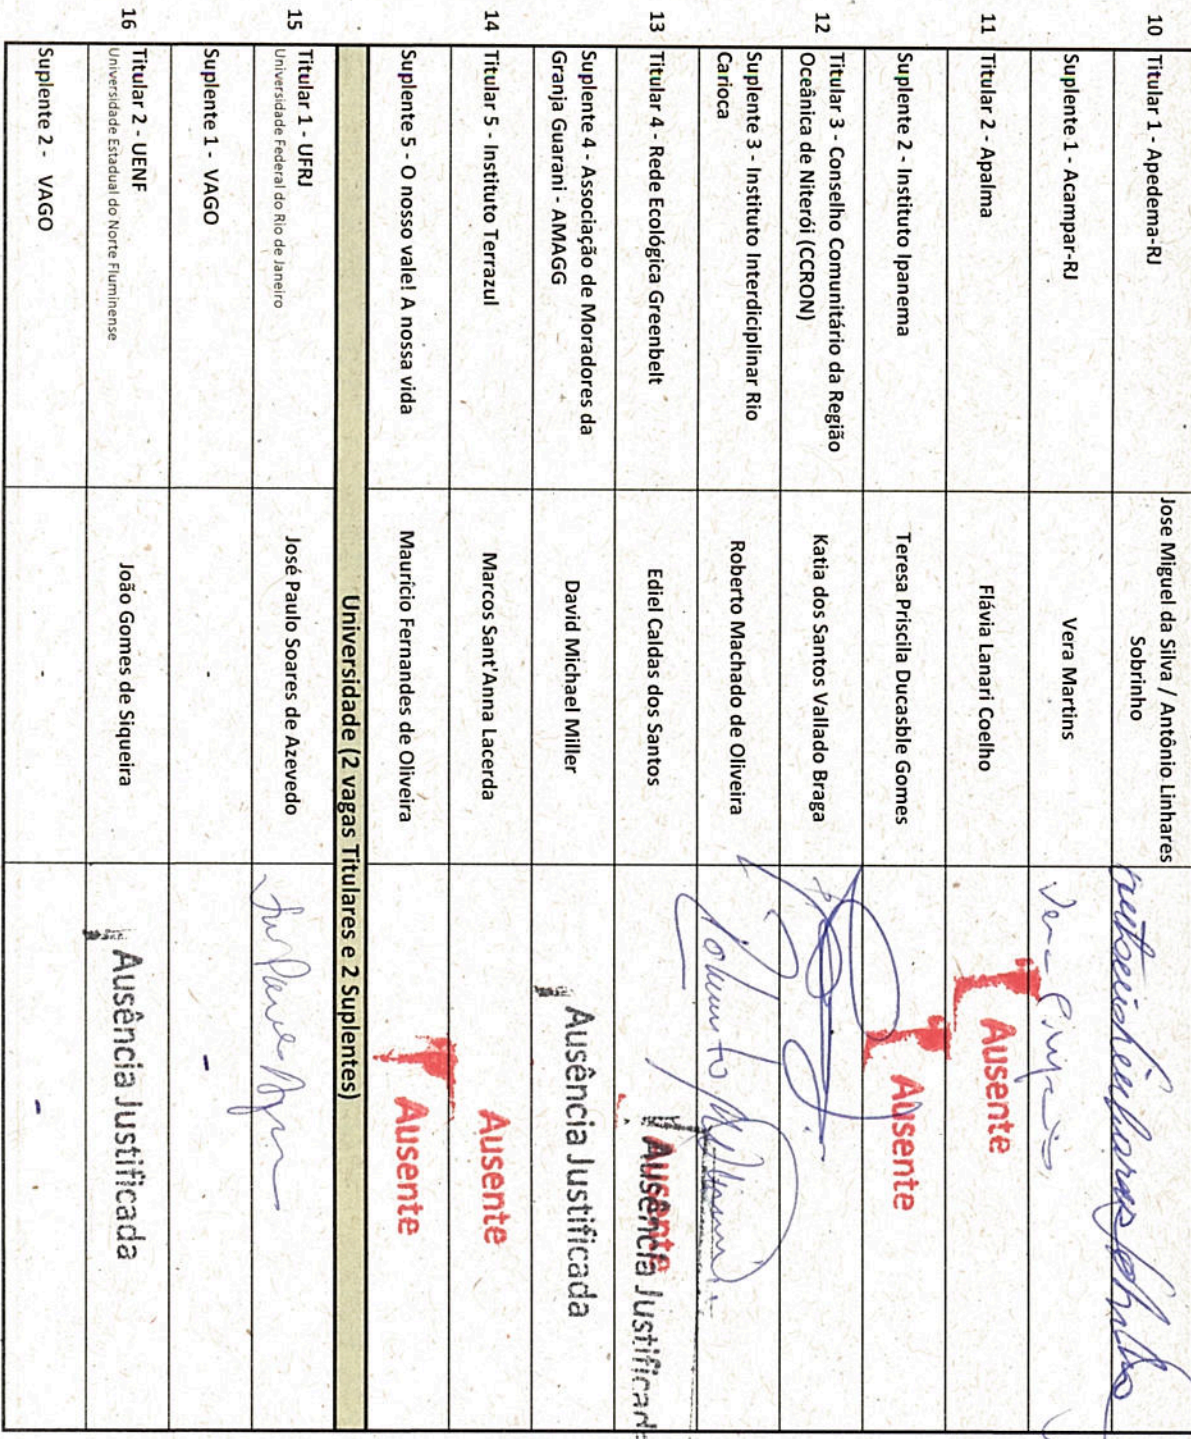 10 Titular 1 - Apedema-RJ
Jose Miguel da Silva / Antônio Linhares
Sobrinho
Suplente 1 - Acampar-RJ
Vera Martins
11 Titular 2 - Apalma
Flávia Lanari Coelho
Ausente
Suplente 2 - Instituto Ipanema
Teresa Priscila Ducasble Gomes
Ausente
12 Titular 3 - Conselho Comunitário da Região
Oceânica de Niterói (CCRON)
Katia dos Santos Vallado Braga
Suplente 3 - Instituto Interdiciplinar Rio
Carioca
Roberto Machado de Oliveira
13 Titular 4 - Rede Ecológica Greenbelt
Ediel Caldas dos Santos
Ausente
Ausência Justificada
Suplente 4 - Associação de Moradores da
Granja Guarani - AMAGG
David Michael Miller
Ausência Justificada
14 Titular 5 - Instituto Terrazul
Marcos Sant'Anna Lacerda
Ausente
Suplente 5 - O nosso vale! A nossa vida
Maurício Fernandes de Oliveira
Ausente
Universidade (2 vagas Titulares e 2 Suplentes)
15 Titular 1 - UFRJ
Universidade Federal do Rio de Janeiro
José Paulo Soares de Azevedo
Suplente 1 - VAGO
-
-
16 Titular 2 - UENF
Universidade Estadual do Norte Fluminense
João Gomes de Siqueira
Ausência Justificada
Suplente 2 - VAGO
-
-